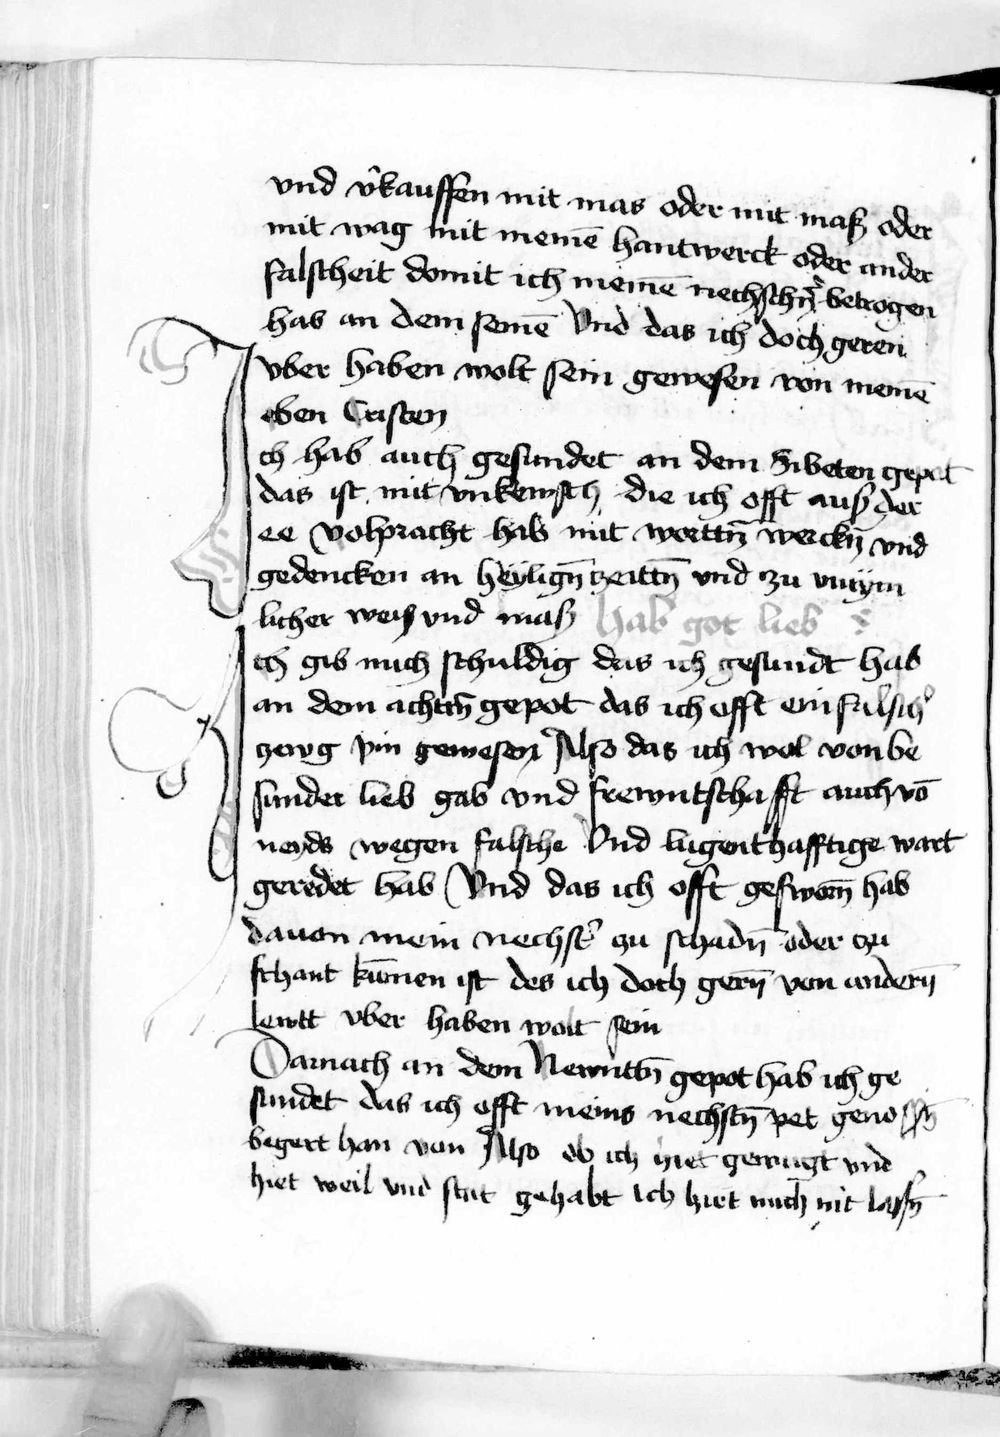 vnd v̉kauffen mit mas oder mit maß oder
mit wag mit meinē hantwerck oder ander
falscheit domit ich meinē nechschn̄ betrogen
hab an dem seinē Vnd das ich doch geren
vber haben wolt sein gewesen von meinē
eben Cristen
Ich hab auch gesundet an dem Sibeten gepot
das ist mit vnkewsch die ich offt auß der
ee volpracht hab mit worttn̄ werckn̄ vnd
gedencken an heylign̄ zeittn̄ vnd zu vnzym
licher weiß vnd maß hab got lieb
Ich gib mich schuldig das ich gesundt hab
an dem achttn̄ gepot das ich offt ein falsch̉
zewg pin gewesen Also das ich wol von be
sunder lieb gab vnd frewntschafft auch vō
neyds wegen falsche Vnd lugenthafftige wart
geredet hab Vnd das ich offt gesworn̄ hab
dauon mein nechst̉ zu schadn̄ oder zu
schant kūmen ist des ich doch gern̄ von andern̄
lewtt vber haben wolt sein
Darnach an dem Newnttn̄ gepot hab ich ge
sundet das ich offt meins nechstn̄ pet genossn̄
begert han von Also ob ich hiet gemugt vnd
hiet weil vnd stat gehabt ich hiet mich nit lassn̄